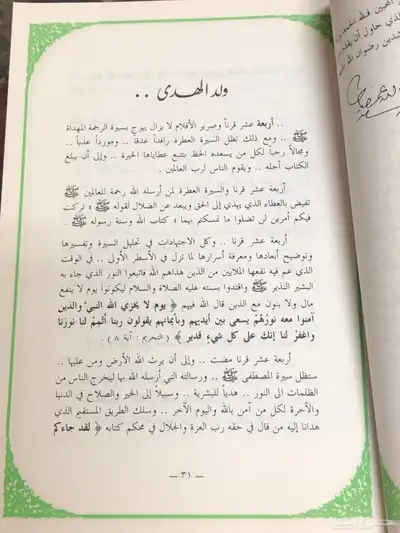 المحبين فلله الحمد وله
الذي حاول أن يقدم
الراشدين رضوان الله
ولد الهدى ..
.. أربعة عشر قرناً وصرير الأقلام لا يزال يهزج بسيرة الرحمة المهداة
ﷺ .. ومع ذلك تظل السيرة العطرة رافداً غدقاً .. ومورداً عذباً ..
ومجالاً رحباً لكل من يسعده الحظ بتتبع عطاياها الخيرة .. وإلى أن يبلغ
الكتاب أجله .. ويقوم الناس لرب العالمين .
أربعة عشر قرنا والسيرة العطرة لمن أرسله الله رحمة للعالمين ﷺ
تفيض بالعطاء الذي يهدي إلى الحق ويبعد عن الضلال لقوله ﷺ « تركت
فيكم أمرين لن تضلوا ما تمسكتم بهما » كتاب الله وسنة رسوله ﷺ .
أربعة عشر قرنا .. وكل الاجتهادات في تحليل السيرة وتفسيرها
وتوضيح أبعادها ومعرفة أسرارها لما نزل في الأسطر الأولى .. في الوقت
الذي عم فيه نفعها الملايين من الذين هداهم الله فاتبعوا النور الذي جاء به
البشير النذير ﷺ واقتدوا بسنته عليه الصلاة والسلام ليكونوا يوم لا ينفع
مال ولا بنون مع الذين قال الله فيهم ﴿ يوم لا يخزي الله النبيّ والذين
آمنوا معه نورُهُمْ يسعى بين أيديهم وبأيمانهم يقولون ربنا أتْمِمْ لنا نورَنا
واغفرْ لنا إنك على كل شيءٍ قدير ﴾ ( التحريم : آية ٨ ) .
أربعة عشر قرنا مضت .. وإلى أن يرث الله الأرض ومن عليها ..
ستظل سيرة المصطفى ﷺ .. ورسالته التي أرسله الله بها ليخرج الناس من
الظلمات الى النور .. هدياً للبشرية .. وسبيلاً إلى الخير والصلاح في الدنيا
والآخرة لكل من آمن بالله واليوم الآخر .. وسلك الطريق المستقيم الذي
هدانا إليه من قال في حقه رب العزة والجلال في محكم كتابه ﴿ لقد جاءكم
— ٣١ —